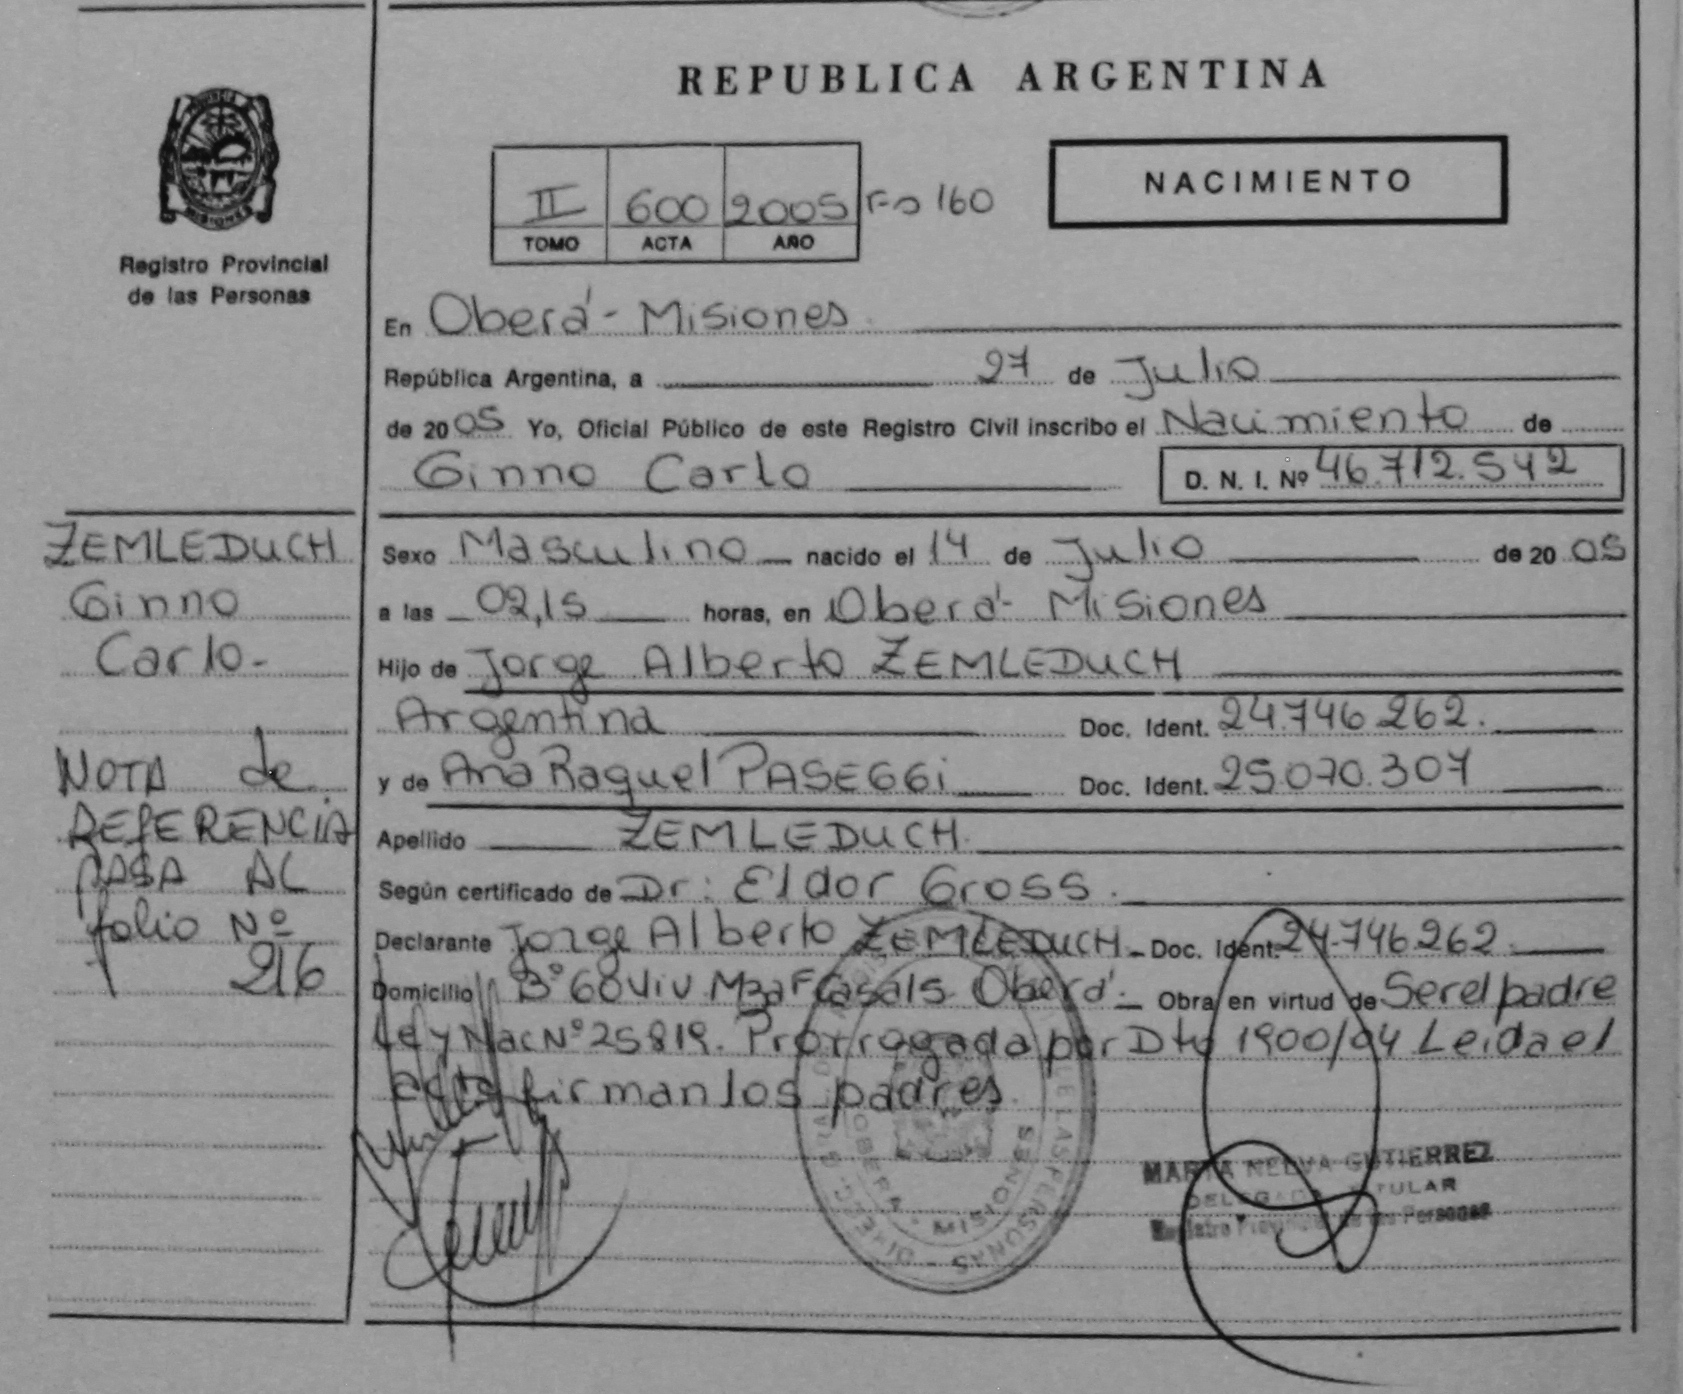 REPUBLICA ARGENTINA
MISIONES
Registro Provincial
de las Personas
II 600 2005 Fo 160
TOMO ACTA AÑO
NACIMIENTO
En Oberá - Misiones
República Argentina, a 27 de Julio
de 2005 Yo, Oficial Público de este Registro Civil inscribo el Nacimiento de
Ginno Carlo D. N. I. Nº 46.712.542
ZEMLEDUCH
Ginno
Carlo-
NOTA de
REFERENCIA
PASA AL
folio Nº
216
Sexo Masculino nacido el 14 de Julio de 2005
a las 02,15 horas, en Oberá - Misiones
Hijo de Jorge Alberto ZEMLEDUCH
Argentina Doc. Ident. 24.746.262.
y de Ana Raquel PASEGGi Doc. Ident. 25.070.307
Apellido ZEMLEDUCH.
Según certificado de Dr: Eldor Gross.
Declarante Jorge Alberto ZEMLEDUCH - Doc. Ident. 24.746.262.
Domicilio Bº 60 Viv Mza F Casa 15 Oberá. Obra en virtud de Ser el padre
Ley Nac Nº 25819. Prorrogada por Dto 1900/04 Leida el
acta firman los padres.
DE LAS PERSONAS
OBERA - MISIONES
MARTA NELVA GUTIERREZ
DELEGADA TITULAR
Registro Provincial de las Personas